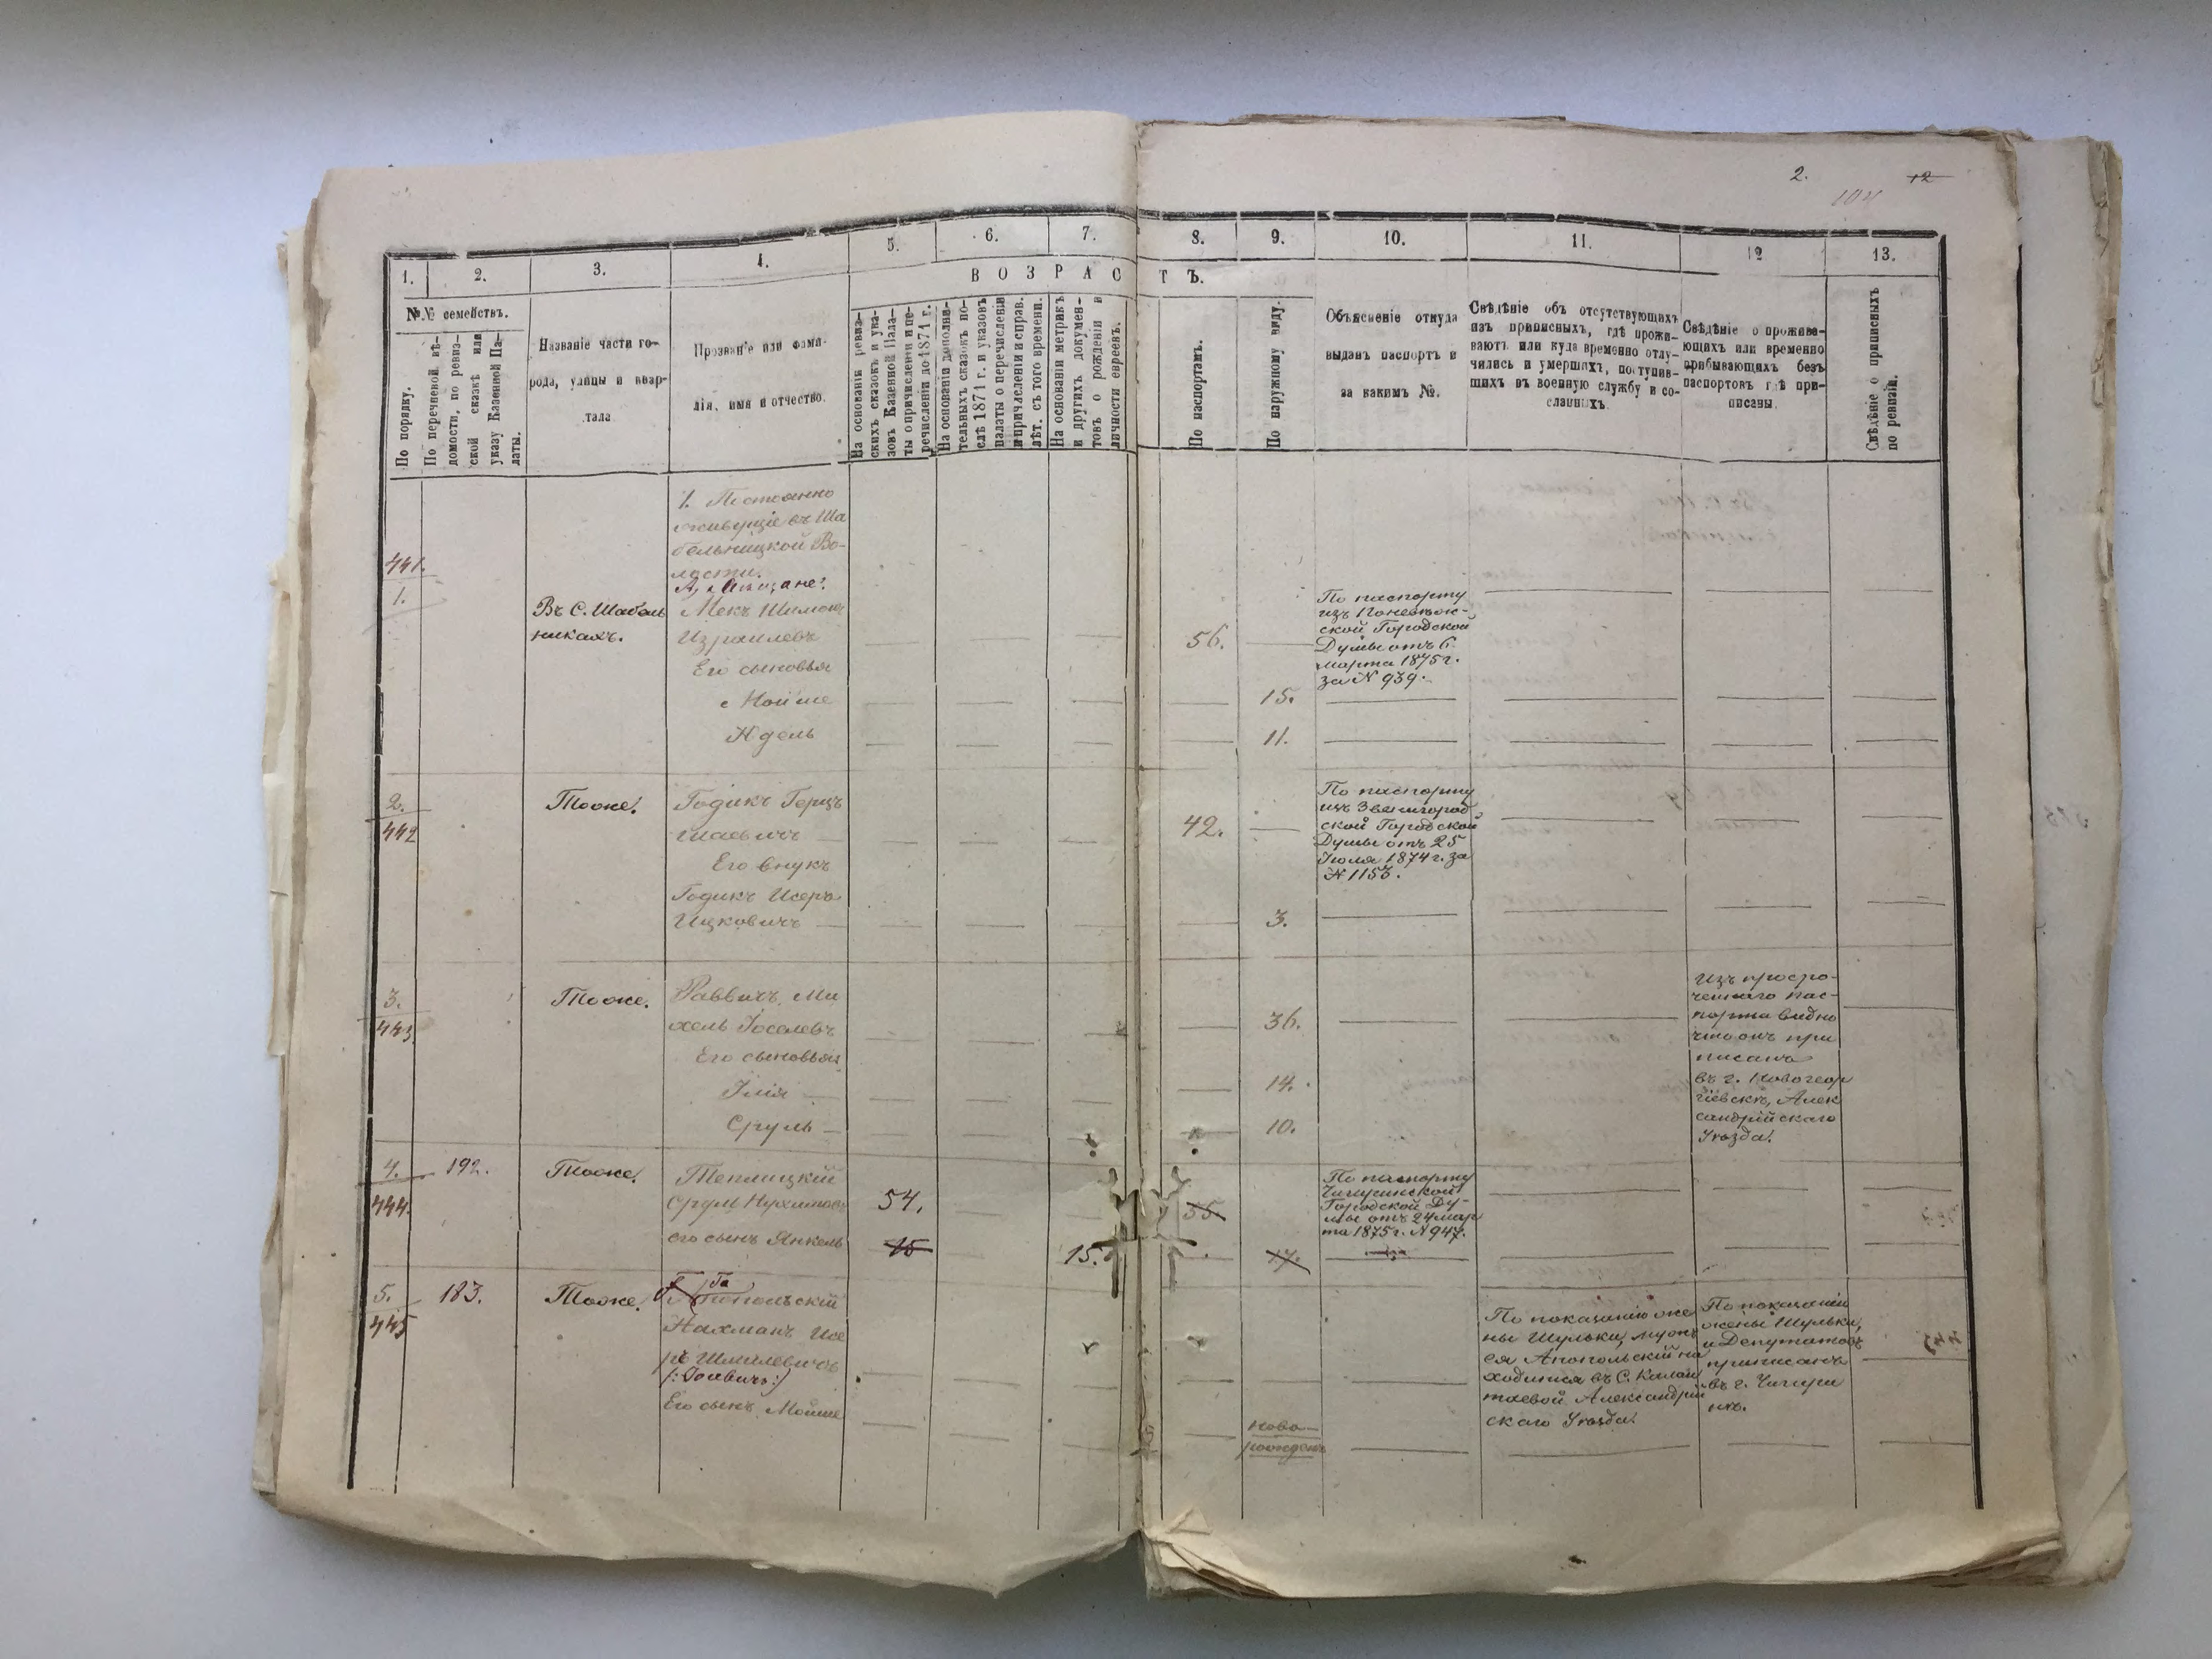 2. 12
104
1.
2.
3.
4.
5.
6.
7.
8.
9.
10.
11.
12
13.
В О З Р А С Т Ъ.
№№ семействъ.
По порядку.
По перечневой вѣ-
домости, по ревиз-
ской сказкѣ или
указу Казенной Па-
латы.
Названіе части го-
рода, улицы и квар-
тала
Прозваніе или фами-
лія, имя и отчество.
На основаніи ревиз-
скихъ сказокъ и ука-
зовъ Казенной Пала-
ты о причисленіи и пе-
речисленіи до 1871 г.
На основаніи дополни-
тельныхъ сказокъ по-
слѣ 1871 г. и указовъ
палаты о перечисленіи
и причисленіи и справ.
лѣт. съ того времени.
На основаніи метрикъ
и другихъ докумен-
товъ о рожденіи и
личности евреевъ.
По паспортамъ.
По наружному виду.
Объясненіе откуда
выданъ паспортъ и
за какимъ №.
Свѣдѣніе объ отсутствующихъ
изъ приписныхъ, гдѣ прожи-
ваютъ или куда временно отлу-
чились и умершихъ, поступив-
шихъ въ военную службу и со-
сланныхъ.
Свѣдѣніе о прожива-
ющихъ или временно
прибывающихъ безъ
паспортовъ гдѣ при-
писаны.
Свѣдѣніе о приписныхъ
по ревизіи.
1. Постоянно
живущіе въ Ша
бельницкой Во-
лости.
А, Мѣщане:
441.
1.
Въ С. Шабель
никахъ.
Мекъ Шимонъ
Израилевъ
Его сыновья
Мойше
Идель
56.
15.
11.
По паспорту
изъ Поневѣж-
ской Городской
Думы отъ 6
марта 1875 г.
за № 939.
2.
442
Тоже.
Годикъ Герцъ
Шаевичъ
Его внукъ
Годикъ Исеръ
Ицковичъ
42.
3.
По паспорту
изъ Звенигород
ской Городской
Думы отъ 25
Іюля 1874 г. за
№ 1153.
3.
443
Тоже.
Раввичъ, Ми
хель Іоселевъ
Его сыновья
Срулъ
36.
14.
10.
Изъ просро-
ченнаго пас-
порта видно
что онъ при
писанъ
въ г. Новогеор
гіевскѣ, Алек
сандрійскаго
Уѣзда.
4.
444.
192.
Тоже.
Теплицкій
Срулъ
его сынъ Янкель
54.
15
15.
55
17.
По паспорту
Чигиринской
Городской Ду-
мы отъ 24 мар
та 1875 г. № 947.
5.
445
183.
Тоже.
Нахманъ Исе
ръ Шмилевичъ
Его сынъ Мойше
ново-
рожденъ
По показанію же
ны Шульки, мужъ
ея Анопольскій на
ходится въ С. Калан
таевой Александрій
скаго Уѣзда.
По показанію
жены Шульки,
и Депутатовъ
приписанъ
въ г. Чигири
нѣ.